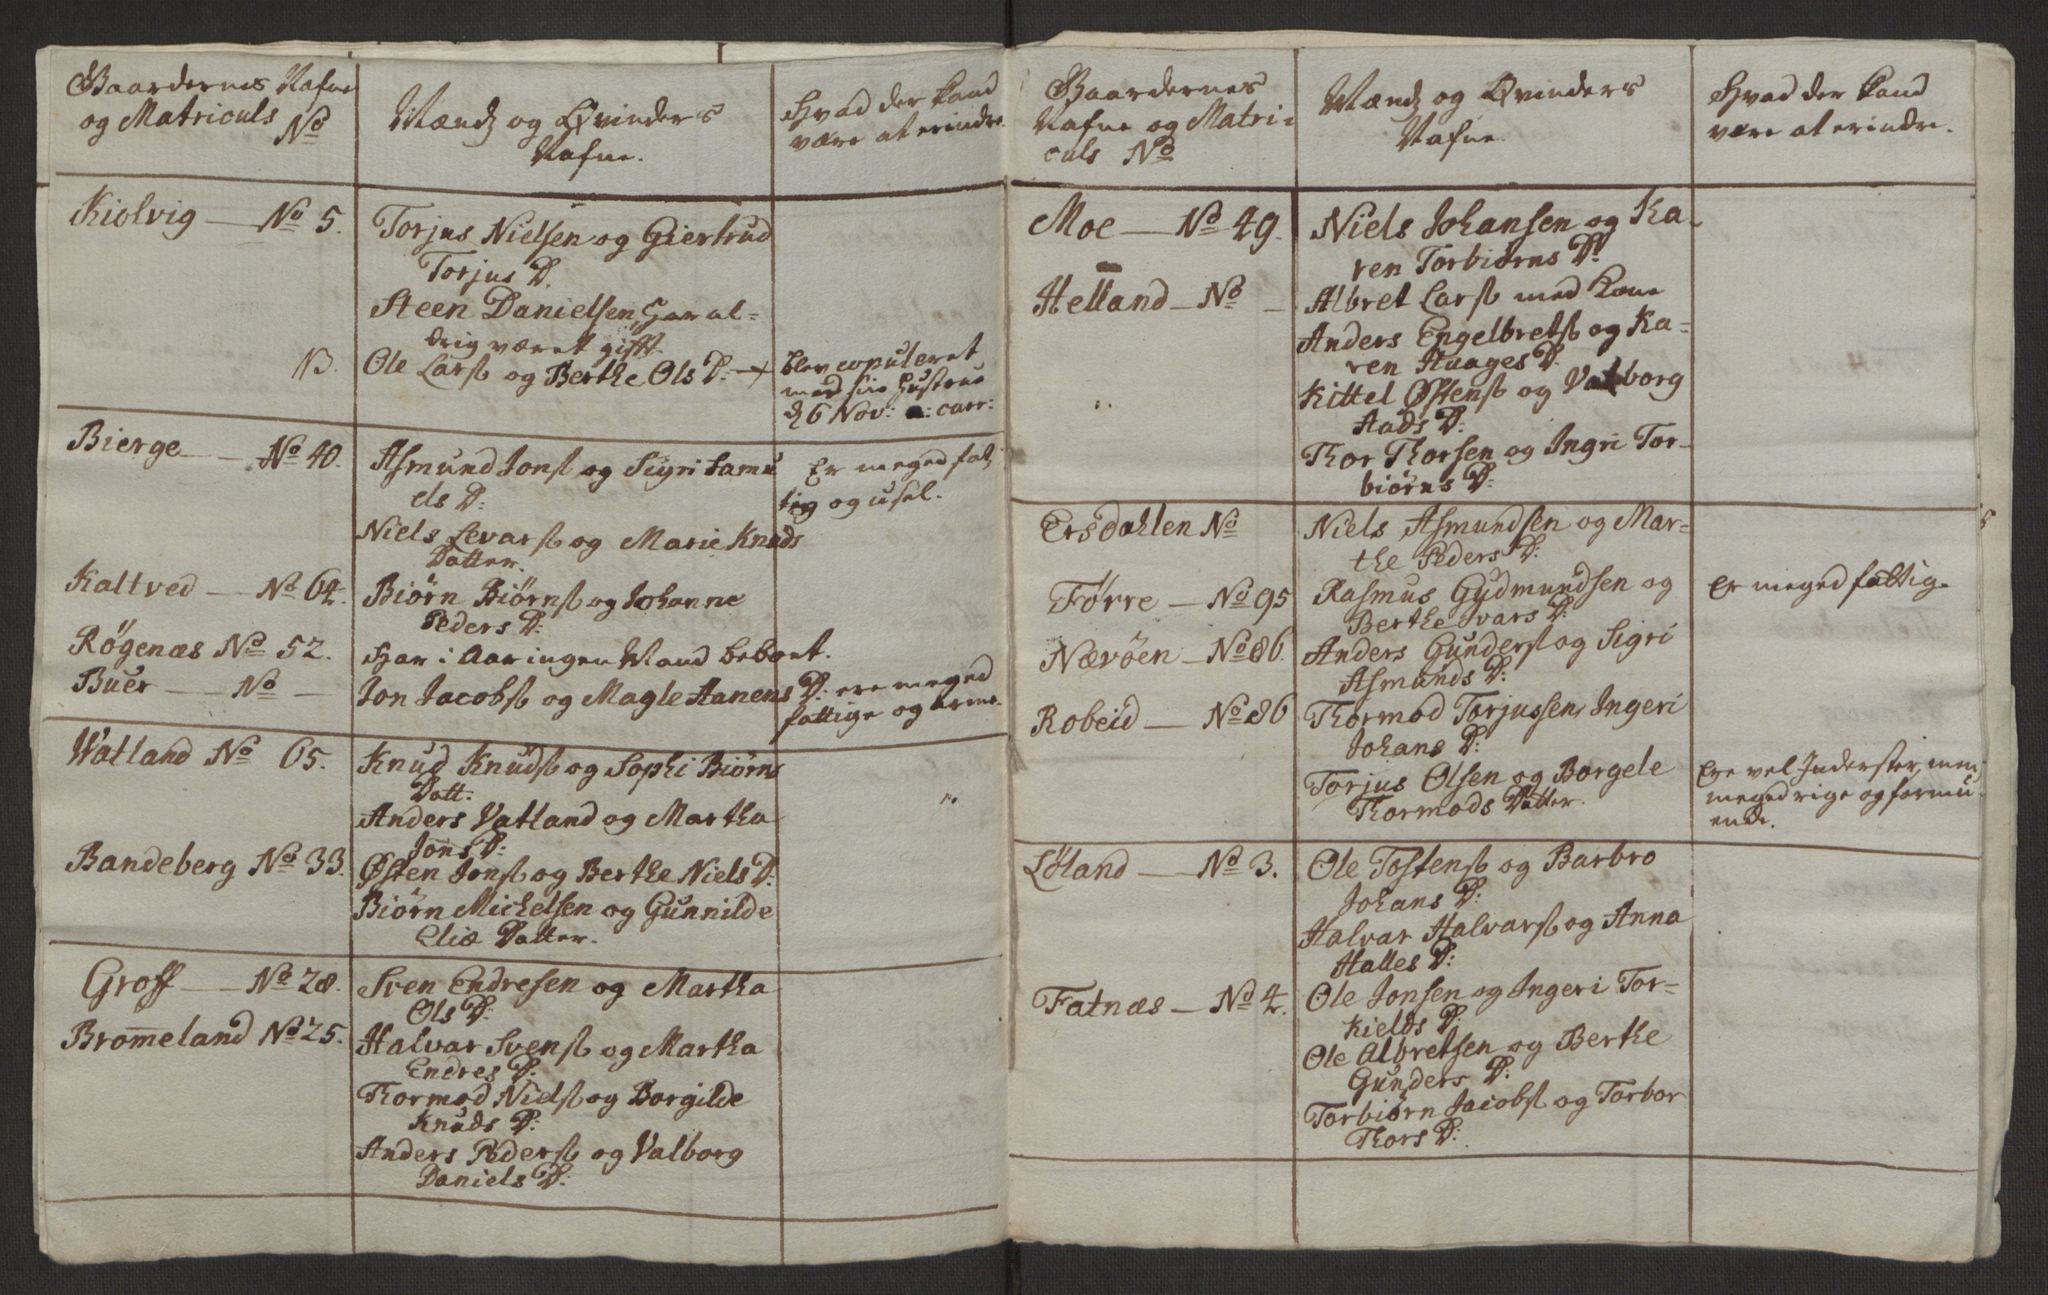 Gaardernes Nafne
og Matriculs
No
Mænds og Qvinders
Nafne.
Hvad der kand
være at erindre.
Kiolvig — No 5.
Torjus Nielsen og Giertrud
Torjus D.
Steen Danielsen, har al-
drig været gifft
NB.
Ole Lars og Berthe Ols D:
blev copuleret
med sin Hustrue
d 6 Nov: a: curr:
Bierge — No 40.
Asmund Jons og Sigri Samu
els D:
Er meged fat
tig og usel.
Niels Levars og Marie Knuds
Datter.
Kaltved — No 64.
Biørn Biørns og Johanne
Peders D:
Røgenæs No 52.
Har i Aar ingen Mand beboet.
Buer — No —
Jon Jacobs og Magle Aanens D: ere meged
fattige og arme.
Vatland No 65.
Knud Knuds og Sophi Biørns
Datt:
Anders Vatland og Martha
Jons D:
Bandeberg No 33.
Østen Jons og Berthe Niels D:
Biørn Michelsen og Gunnilde
Eliæ Datter.
Groff — No 28.
Sven Endresen og Martha
Ols D:
Bromeland No 25.
Halvar Svens og Martha
Endres D:
Thormod Niels og Borgilde
Knuds D:
Anders Peders og Valborg
Daniels D:
Gaardernes
Nafne og Matri-
culs No
Mænds og Qvinders
Nafne
Hvad der kand
være at erindre.
Moe — No 49.
Niels Johansen og Ka-
ren Torbiørns D:
Helland — No —
Albret Lars med Kone
Anders Engelbrets og Ka-
ren Haages D:
Kittel Østens og Valborg
Aads D:
Thor Thorsen og Ingri Tor-
biørns D:
Ersdahlen No
Niels Asmundsen og Mar-
the Peders D:
Førre — No 95
Rasmus Gudmundsen og
Berthe Ivars D:
Er meged fattig.
Nævøen — No 86.
Anders Gunders og Sigri
Asmunds D:
Robeid — No 86
Thormod Torjussen, Ingeri
Johans D:
Torjus Olsen og Borgele
Thormods Datter.
Ere vel Inderster, men
meged rige og formu-
ende.
Løland — No 3.
Ole Tostens og Barbro
Johans D:
Halvar Halvars og Anna
Halles D:
Fatnæs — No 4.
Ole Jonsen og Ingeri Tor-
kields D:
Ole Albretsen og Berthe
Gunders D:
Torbiørn Jacobs og Torbor
Thors D: